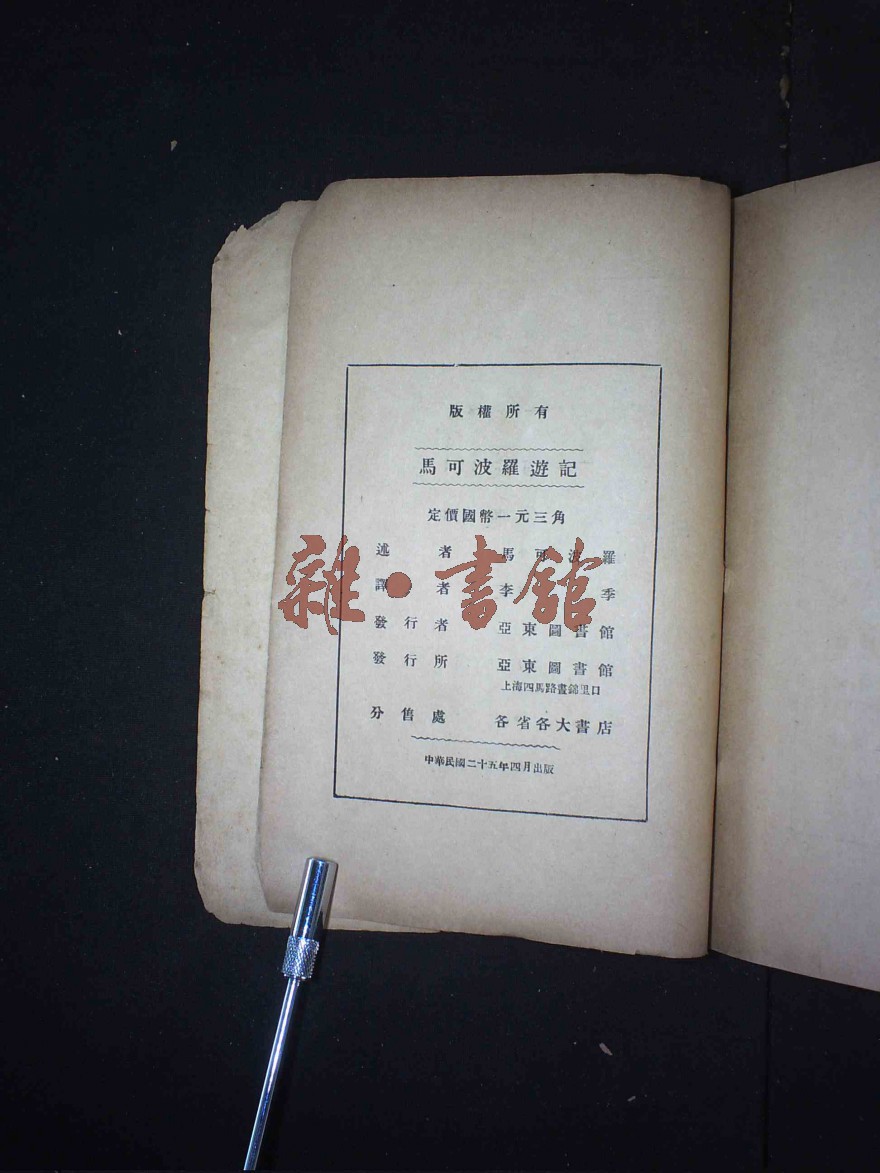 版權所有
馬可波羅遊記
定價國幣一元三角
述者 馬可波羅
譯者 李季
發行者 亞東圖書館
發行所 亞東圖書館
上海四馬路畫錦里口
分售處 各省各大書店
中華民國二十五年四月出版
雜·書館